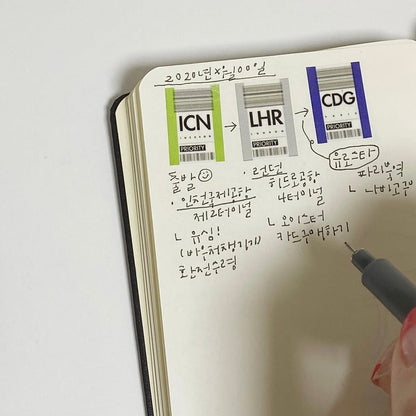 2020년 X월 00일
ICN
PRIORITY
LHR
PRIORITY
CDG
PRIORITY
유로스타
출발
· 인천국제공항
제2터미널
ㄴ 유심!
(바우처챙기기)
환전수령
· 런던
히드로공항
4터미널
ㄴ 오이스터
카드구매하기
파리북역